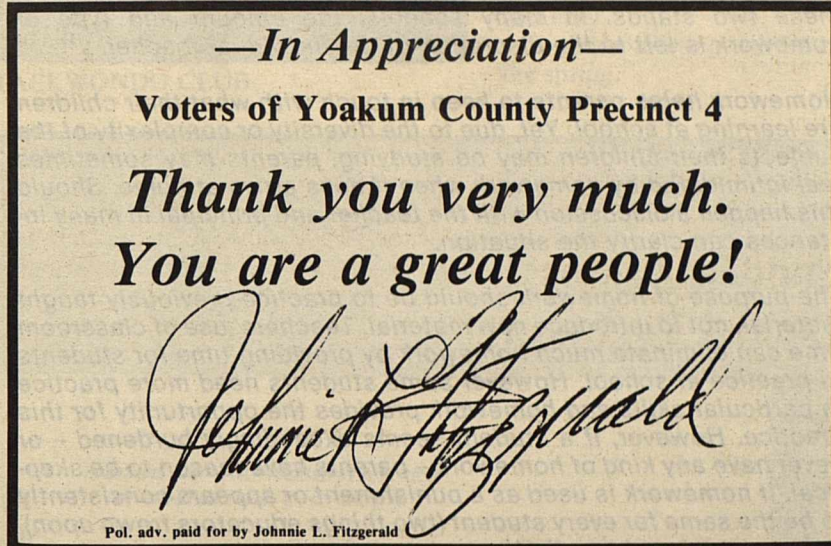 —In Appreciation—
Voters of Yoakum County Precinct 4
Thank you very much.
You are a great people!
Johnnie L Fitzgerald
Pol. adv. paid for by Johnnie L. Fitzgerald